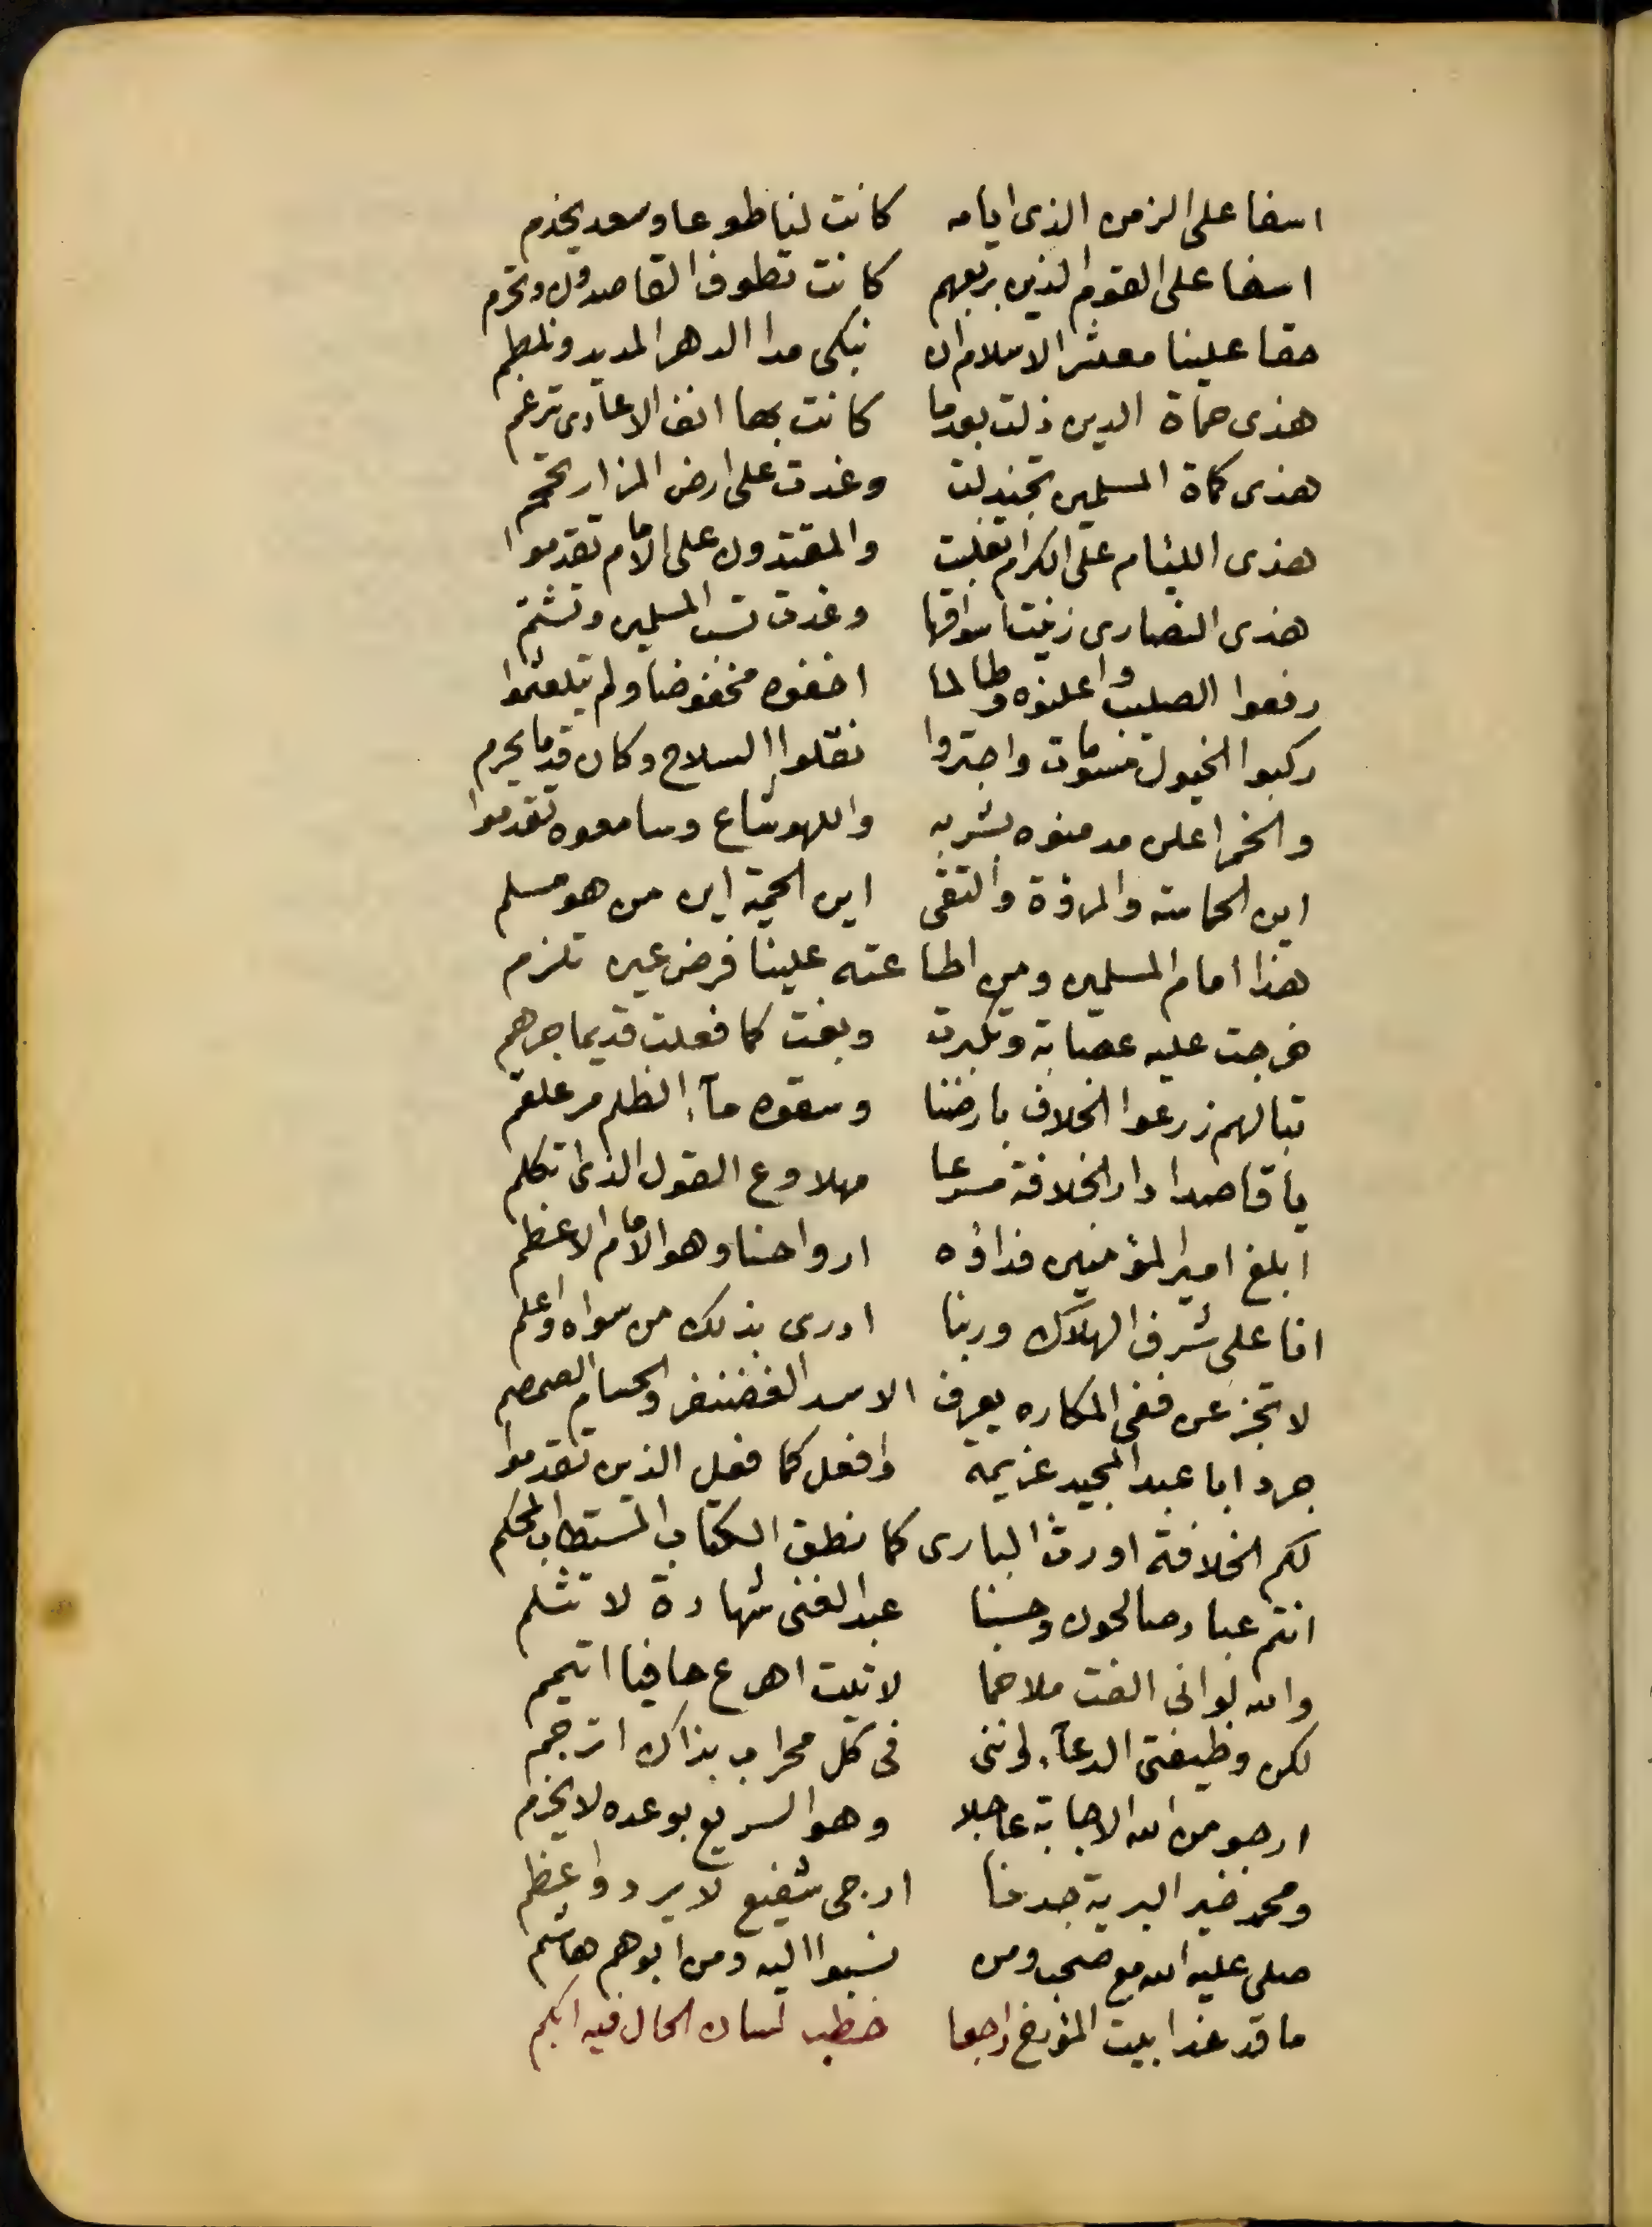 اسفا على الزمن الذى ايامه كانت لنا طوعا وسعد يخدم
اسفا على القوم الذين بربعهم كانت تطوف القاصدون وتحرم
حقا علينا معشر الاسلام ان نبكى مدا الدهر المديد ونلطم
هذى حماة الدين ذلت بعدما كانت بها انف الاعادى ترغم
هذى كماة المسلمين تجندلت وغدت على ارض المزار تحتم
هذى اللئام على الكرام تغلبت والمقتدون على الامام تقدموا
هذى النصارى زينت اسواقها وغدت تسب المسلمين وتشتم
رفعوا الصليب واعلنوه وطالما اخفوه مخفوضا ولم يتلعثموا
ركبوا الخيول مسومات واجتروا نقلوا السلاح وكان قدما يحرم
والخمر اعلن مدمنوه بشربه واللهو شاع وسامعوه تقدموا
اين الحماسة والمروة والتقى اين الحمية اين من هو مسلم
هذا امام المسلمين ومن اطاعته علينا فرض عين تلزم
خرجت عليه عصابة وتكبرت وبغت كما فعلت قديما جرهم
تبا لهم زرعوا الخلاف بارضنا وسقوه مآء الظلم مر علقم
يا قاصدا دار الخلافة مسرعا مهلا وع القول الذى اتكلم
ابلغ امير المؤمنين فداؤه ارواحنا وهو الامام الاعظم
انا على شرف الهلاك وربنا ادرى بذلك من سواه واعلم
لا تجزعن ففى المكاره يعرف الاسد الغضنفر والحسام الصمصم
جرد ابا عبد المجيد عزيمة وافعل كما فعل الذين تقدموا
لكم الخلافة اورث البارى كما نطق الكتاب المستطاب المحكم
انتم عباد صالحون وحسبنا عبد الغنى شهادة لا تثلم
والله لو انى الفت ملاحما لاتيت اهرع حافيا اتيمم
لكن وظيفتى الدعآء لاننى فى كل محراب بذاك اترجم
ارجو من الله الاجابة عاجلا وهو السريع بوعده لا يخرم
ومحمد خير البرية جدنا ارجى شفيع لا يرد واعظم
صلى عليه الله مع صحب ومن نسبوا اليه ومن ابوهم هاشم
ما قد غدا بيت المؤرخ راجعا خطب لسان الحال فيه ابكم